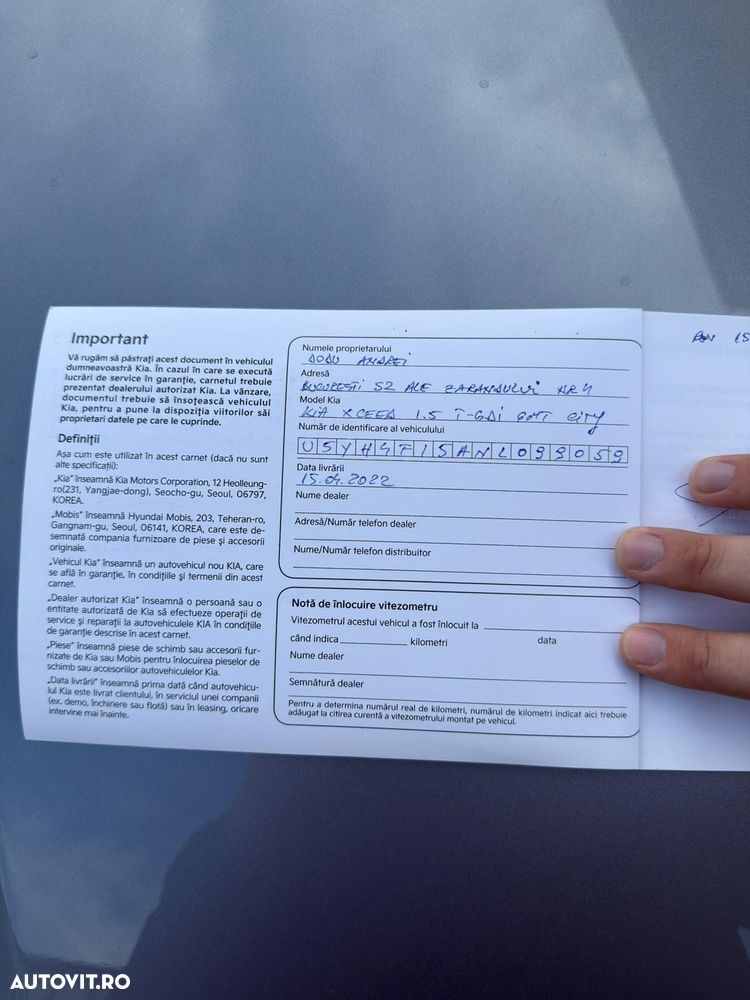 Important
Vă rugăm să păstrați acest document în vehiculul
dumneavoastră Kia. În cazul în care se execută
lucrări de service în garanție, carnetul trebuie
prezentat dealerului autorizat Kia. La vânzare,
documentul trebuie să însoțească vehiculul
Kia, pentru a pune la dispoziția viitorilor săi
proprietari datele pe care le cuprinde.
Definiții
Așa cum este utilizat în acest carnet (dacă nu sunt
alte specificații):
„Kia" înseamnă Kia Motors Corporation, 12 Heolleung-
ro(231, Yangjae-dong), Seocho-gu, Seoul, 06797,
KOREA.
„Mobis" înseamnă Hyundai Mobis, 203, Teheran-ro,
Gangnam-gu, Seoul, 06141, KOREA, care este de-
semnată compania furnizoare de piese și accesorii
originale.
„Vehicul Kia" înseamnă un autovehicul nou KIA, care
se află în garanție, în condițiile și termenii din acest
carnet.
„Dealer autorizat Kia" înseamnă o persoană sau o
entitate autorizată de Kia să efectueze operații de
service și reparații la autovehiculele KIA în condițiile
de garanție descrise în acest carnet.
„Piese" înseamnă piese de schimb sau accesorii fur-
nizate de Kia sau Mobis pentru înlocuirea pieselor de
schimb sau accesoriilor autovehiculelor Kia.
„Data livrării" înseamnă prima dată când autovehicu-
lul Kia este livrat clientului, în serviciul unei companii
(ex. demo, închiriere sau flotă) sau în leasing, oricare
intervine mai înainte.
Numele proprietarului
DODU ANDREI
Adresă
BUCURESTI S2 ALE ZARANDULUI NR 4
Model Kia
KIA XCEED 1.5 T-GDI 6MT CITY
Număr de identificare al vehiculului
U5YH4F15ANL099059
Data livrării
15.04.2022
Nume dealer
Adresă/Număr telefon dealer
Nume/Număr telefon distribuitor
Notă de înlocuire vitezometru
Vitezometrul acestui vehicul a fost înlocuit la
când indica kilometri data
Nume dealer
Semnătură dealer
Pentru a determina numărul real de kilometri, numărul de kilometri indicat aici trebuie
adăugat la citirea curentă a vitezometrului montat pe vehicul.
AUTOVIT.RO